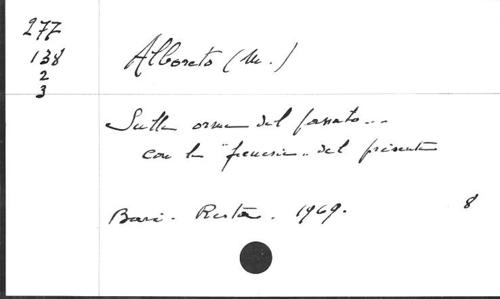 277
138
2
3
Alboreto (M.)
Sulle orme del passato...
con la "frenesia" del presente
Bari. Resta. 1969.
8